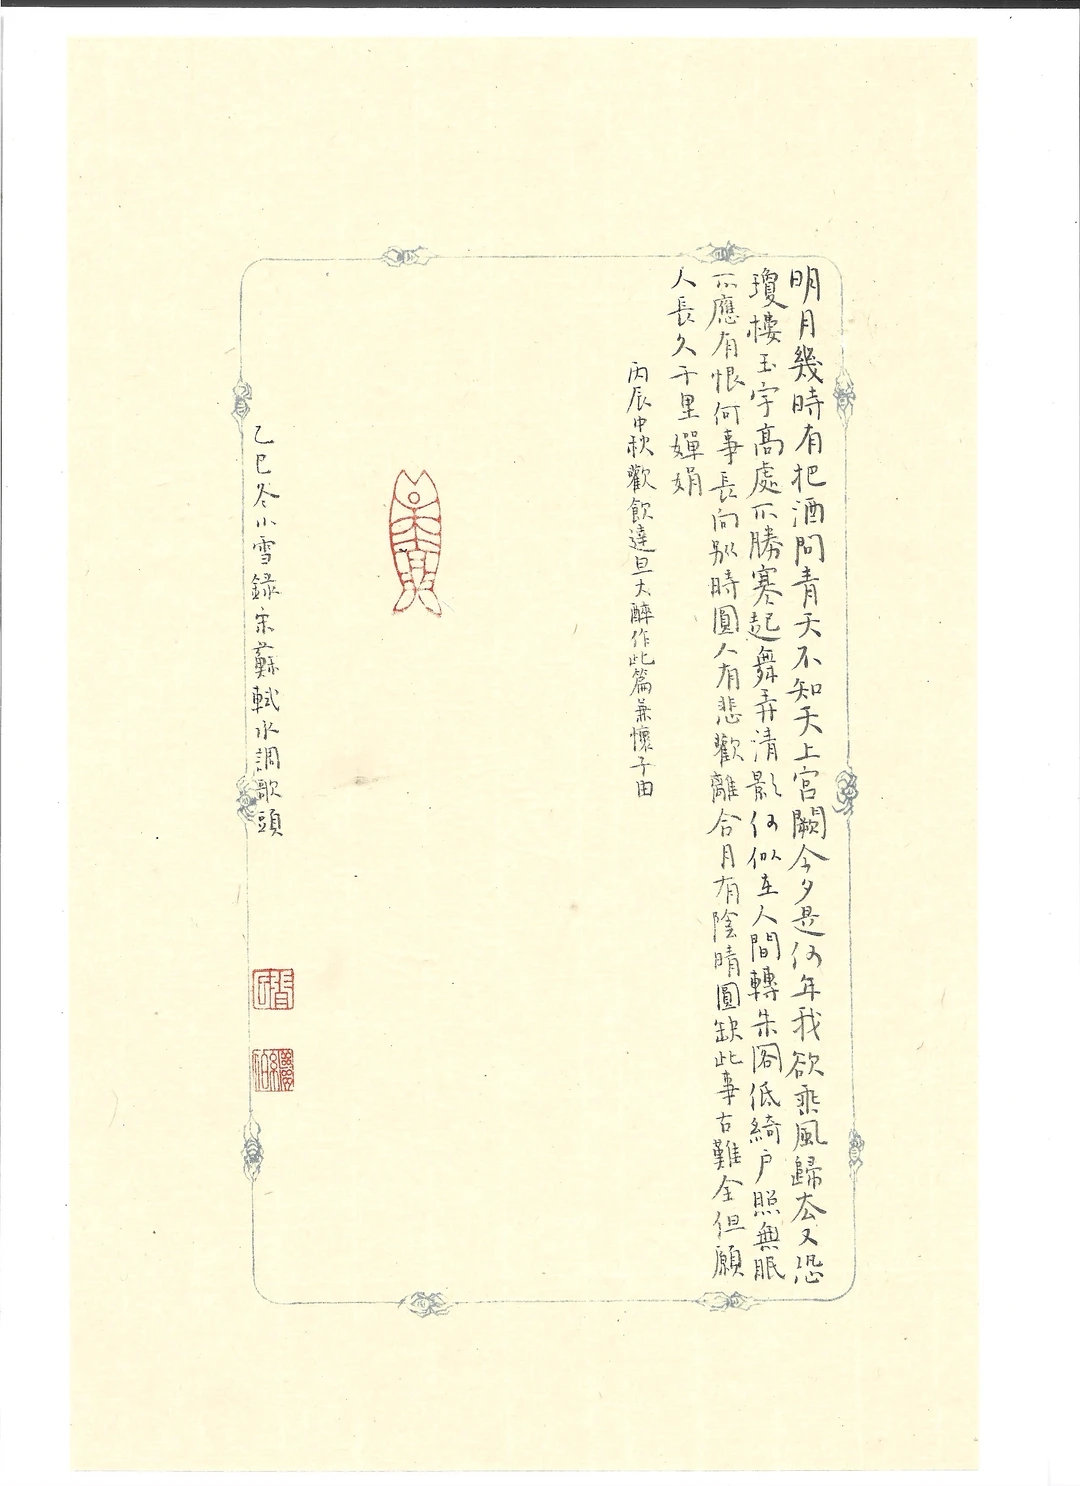 明月幾時有把酒問青天不知天上宮闕今夕是何年我欲乘風歸去又恐
瓊樓玉宇高處不勝寒起舞弄清影何似在人間轉朱閣低綺戶照無眠
不應有恨何事長向別時圓人有悲歡離合月有陰晴圓缺此事古難全但願
人長久千里嬋娟
丙辰中秋歡飲達旦大醉作此篇兼懷子由
乙巳冬小雪錄宋蘇軾水調歌頭